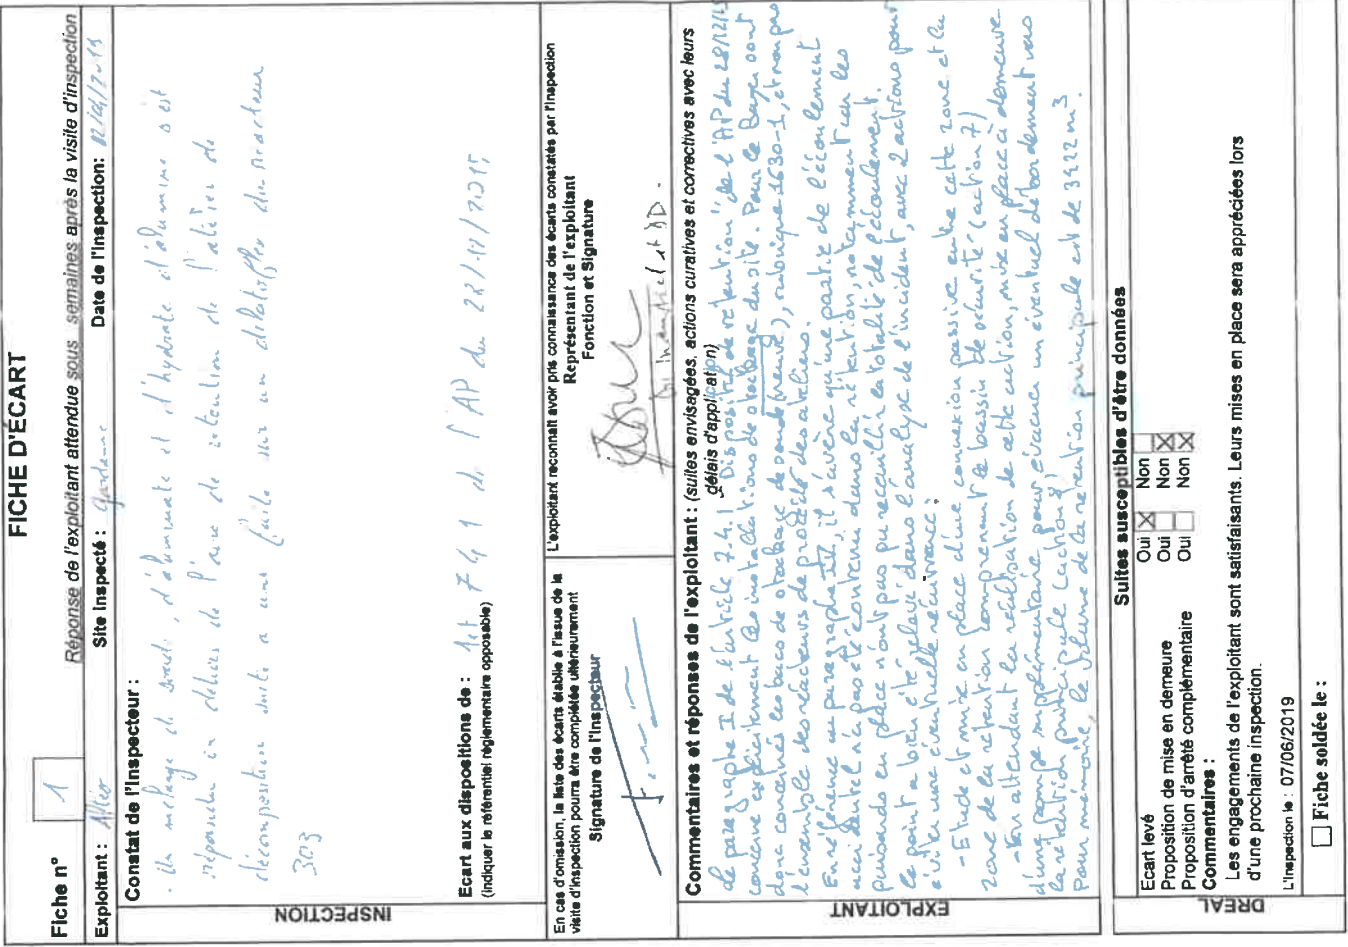 FICHE D'ÉCART
Fiche n° 1
Réponse de l'exploitant attendue sous semaines après la visite d'inspection
Exploitant : Alteo Site Inspecté : Gardanne Date de l'Inspection:
INSPECTION
Constat de l'Inspecteur :
. Un mélange de soude, d'aluminate et d'hydrate d'alumine s'est
répandu en dehors de l'aire de rétention de l'atelier de
décomposition suite à une fuite sur un du réacteur
303
Ecart aux dispositions de : Art 7.4.1 de l'AP du 28/12/2015
(indiquer le référentiel réglementaire opposable)
En cas d'omission, la liste des écarts établie à l'issue de la
visite d'inspection pourra être complétée ultérieurement
Signature de l'Inspecteur
L'exploitant reconnaît avoir pris connaissance des écarts constatés par l'Inspection
Représentant de l'exploitant
Fonction et Signature
EXPLOITANT
Commentaires et réponses de l'exploitant : (suites envisagées, actions curatives et correctives avec leurs
délais d'application)
Le paragraphe I de l'article 7.4.1 Dispositifs de rétention" de l'AP du 28/12/15
concerne explicitement les installations de stockage du site. Pour Le Bayer sont
donc concernés les bacs de stockage de soude (neuve), rubrique 1630-1, et non pas
l'ensemble des réacteurs de procédé des ateliers.
En référence au paragraphe III, il s'avère qu'une partie de l'écoulement
accidentel n'a pas été contenu dans la rétention, notamment car les
puisards en place n'ont pas pu recueillir la totalité de l'écoulement.
Ce point a bien été relevé dans l'analyse de l'incident, avec 2 actions pour
éviter une éventuelle récurrence :
- Etude et mise en place d'une connexion passive entre cette zone et la
zone de la rétention comprenant le bassin de sécurité (action 7)
- En attendant la réalisation de cette action, mise en place à demeure
d'une pompe supplémentaire pour évacuer un éventuel débordement vers
la rétention principale (action 9)
Pour mémoire, le volume de la rétention principale est de 3922 m³
DREAL
Suites susceptibles d'être données
Ecart levé Oui ☒ Non ☐
Proposition de mise en demeure Oui ☐ Non ☒
Proposition d'arrêté complémentaire Oui ☐ Non ☒
Commentaires :
Les engagements de l'exploitant sont satisfaisants. Leurs mises en place sera appréciées lors
d'une prochaine inspection.
L'inspection le : 07/06/2019
☐ Fiche soldée le :